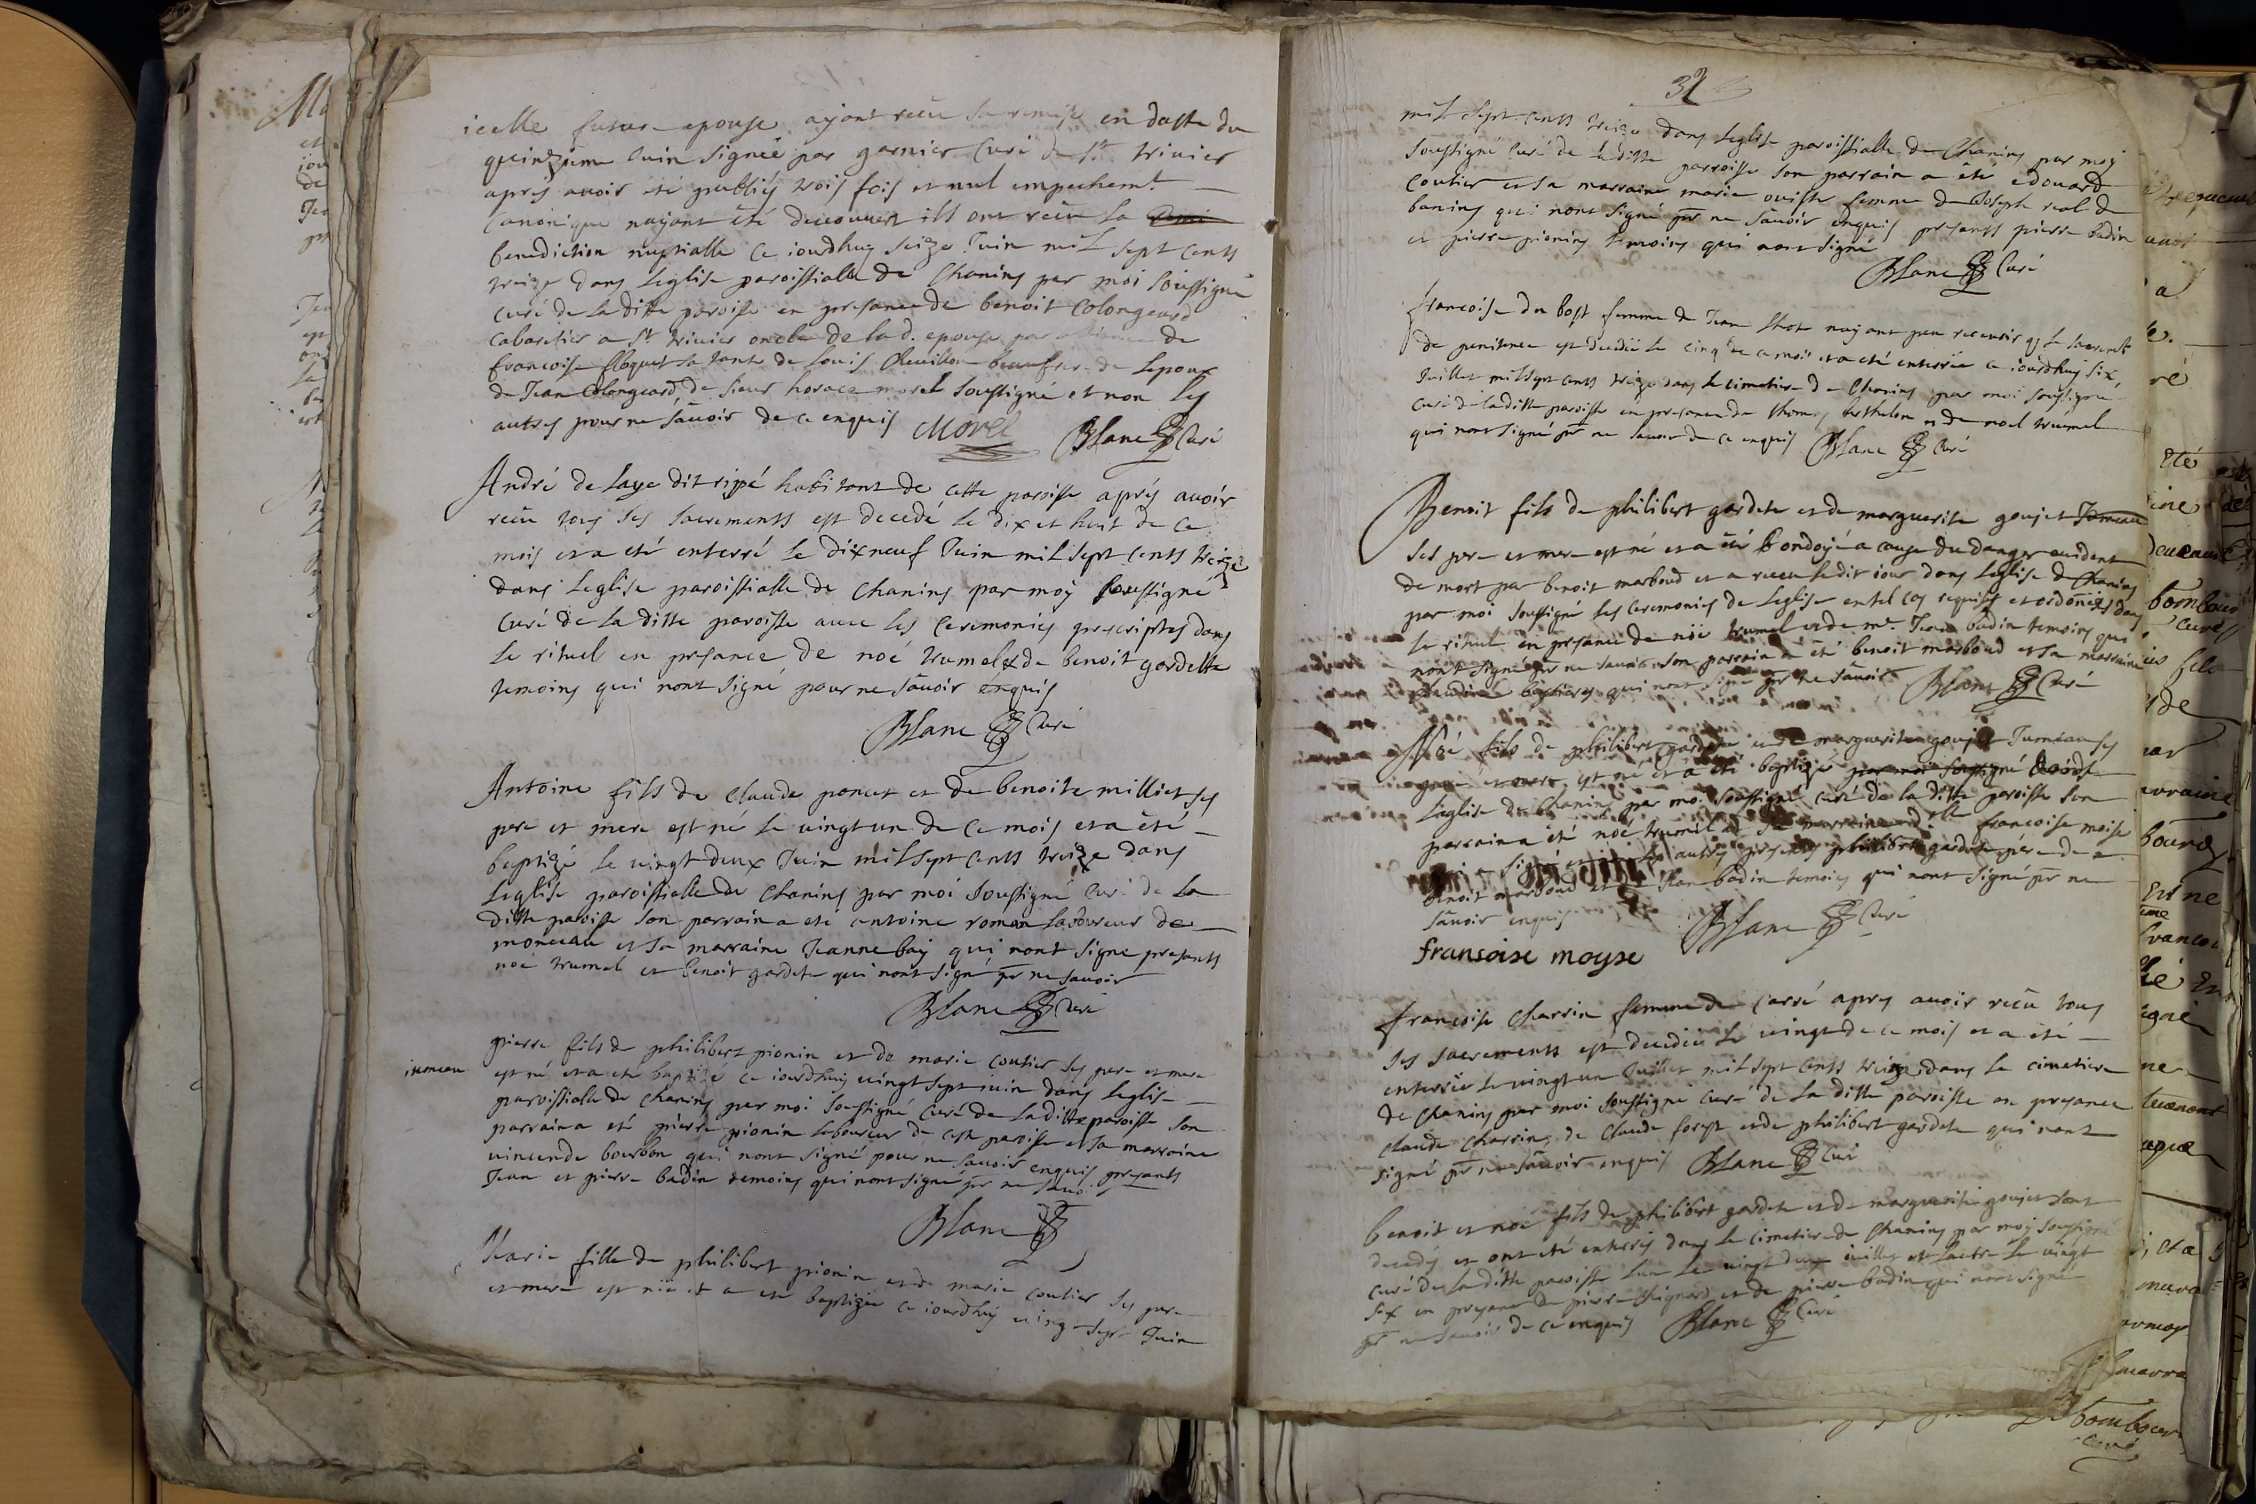 icelle future epouse ayant recu sa remise en datte du
quinzieme Iuin signée par garnier Curé de st. trivier
aprés avoir eté publiés trois fois et nul empechemt.
canonique nayant êté decouvert ils ont recû la
benediction nuptialle ce iourdhuy seize Iuin mil sept cents
treize dans leglise paroissialle de Chanins par moi soussigné
curé de la ditte paroisse en presance de benoit Colongeard
cabaretier a st trivier oncle de la d. epouse par de
francoise floquet sa tante de louis beaufrere de lepoux
de Iean Colongeard, de sieur horace morel soussigné et non les
autres pour ne sâvoir de ce enquis Morel Blanc Curé
André de laye dit ripé habitant de cette paroisse aprés avoir
recû tous ses sacrements est decedé le dix et huit de ce
mois et a eté enterré le dixneuf Iuin mil sept cents treize
dans leglise paroissialle de Chanins par moÿ soussigné
Curé de la ditte paroisse avec les Ceremonies prescriptes dans
le rituel en presance de noé trumel et de benoit gardette
temoins qui nont signé pour ne sâvoir enquis
Blanc Curé
Antoine fils de Claude poncet et de benoite milliet ses
pere et mere est né le vingt un de ce mois et a êté
baptizé le vingt deux Iuin mil sept cents treize dans
leglise paroissialle de Chanins par moi soussigné curé de la
ditte paroisse son parrain a eté antoine roman laboureur de
monceau et sa marraine Ieanne bay qui nont signe presants
noé trumel et benoit gardete qui nont signé pr ne savoir
Blanc Curé
iumeau
pierre fils de philibert pionin et de marie coutier ses pere et mere
est né et a eté baptizé ce iourdhuy vingt sept iuin dans leglise
paroissialle de Chanins par moi soussigné Curé de la ditte paroisse son
parrain a eté pierre pionin laboureur de cette paroisse et sa marraine
vincende bourbon qui nont signé pour ne savoir enquis presants
Iean et pierre badin temoins qui nont signé pr ne savoir
Blanc
Marie fille de philibert pionin et de marie coutier ses pere
et mere est née et a eté baptizée ce iourdhuy vingt sept Iuin
32
mil sept cents treize dans leglise paroissialle de Chanins par moy
soussigné Curé de la ditte parroisse son parrain a êté edouard
coutier et sa marraine marie femme de Ioseph real de
banins qui nont signé pr ne sâvoir enquis presants pierre badin
et pierre pionins temoins qui nont signé
Blanc Curé
francoise du bost femme de Iean nayant peu recevoir que le sacremt
de penitence est decedée le cinq de ce mois et a eté enterrée ce iourdhuy six
Iuillet mil sept cents treize dans le cimetiere de Chanins par moi soussigné
curé de la ditte paroisse en presance de thomas berthelon et de noel trumel
qui nont signé pr ne savoir de ce enquis Blanc Curé
Benoit fils de philibert gardete et de marguerite goujet Iumeau
ses pere et mere est né et a êté bondoyé a cause du danger evident
de mort par benoit marboud et a receu ledit iour dans leglise de Chanins
par moi soussigné les ceremonies de leglise en tel cas requises et ordonnées dans
le rituel en presance de noé trumel et de me. Iean badin temoins qui
nont signé pr ne savoir son parrain a êté benoit marboud et sa marraine
qui nont signé pr ne sâvoir Blanc Curé
Noé fils de philibert gardete et de marguerite goujet Iumeau ses
pere et mere est né et a êté baptizé par moi soussigné
leglise de Chanins par moi soussigné curé de la ditte paroisse son
parrain a êté noé trumel et sa marraine delle francoise moise
autres presants philibert gardete pere de
benoit marboud et Iean badin temoins qui nont signé pr ne
sâvoir enquis Blanc Curé
fransoise moyse
françoise Charrin femme de Carré apres avoir recû tous
ses sacrements est decedée le vingt de ce mois et a êté
enterrée le vingt un Iuillet mil sept cents treize dans le cimetiere
de Chanins par moi soussigné curé de la ditte paroisse en presance
claude Charrin, de Claude forest et de philibert gardete qui nont
signé pr ne sâvoir enquis Blanc Curé
benoit et noé fils de philibert gardete et de marguerite goujet sont
decedés et ont eté enterrés dans le cimetiere de Chanins par moy soussigné
curé de la ditte paroisse lun le vingt deux iuillet et lautre le vingt
six en presance de pierre et de pierre badin qui nont signé
pr ne sâvoir de ce enquis Blanc Curé